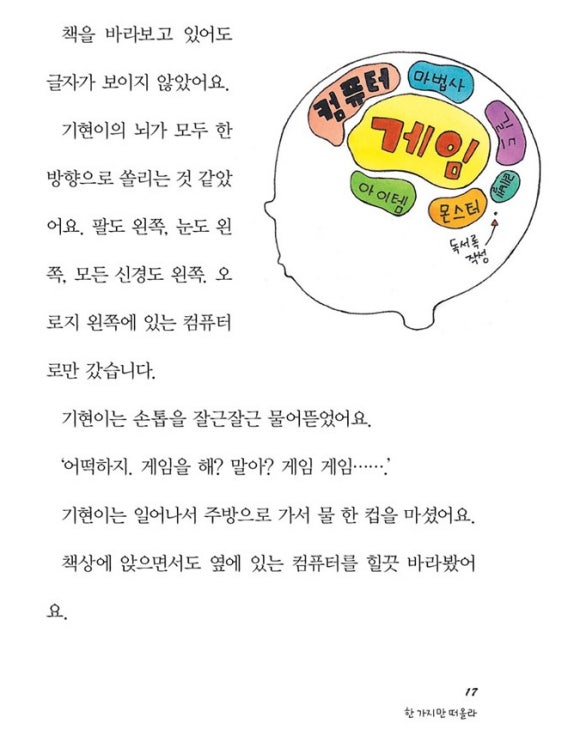 책을 바라보고 있어도
글자가 보이지 않았어요.
기현이의 뇌가 모두 한
방향으로 쏠리는 것 같았
어요. 팔도 왼쪽, 눈도 왼
쪽, 모든 신경도 왼쪽. 오
로지 왼쪽에 있는 컴퓨터
로만 갔습니다.
컴퓨터
마법사
게임
길드
아이템
몬스터
독서록
작성
기현이는 손톱을 잘근잘근 물어뜯었어요.
‘어떡하지. 게임을 해? 말아? 게임 게임…….’
기현이는 일어나서 주방으로 가서 물 한 컵을 마셨어요.
책상에 앉으면서도 옆에 있는 컴퓨터를 힐끗 바라봤어
요.
17
한 가지만 떠올라